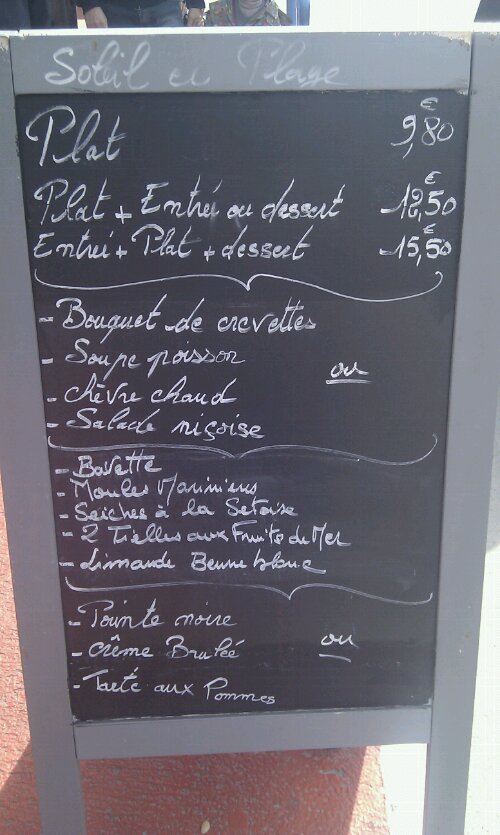 Soleil en Plage
Plat 9,80 €
Plat + Entrée ou dessert 12,50 €
Entrée + Plat + dessert 15,50 €
- Bouquet de crevettes
- Soupe poisson
ou
- chèvre chaud
- Salade niçoise
- Bavette
- Moules Marinières
- Seiches à la Setoise
- 2 Tielles aux Fruits de Mer
- Limande Beurre blanc
- Pointe noire
- crême Brulée ou
- Tarte aux Pommes